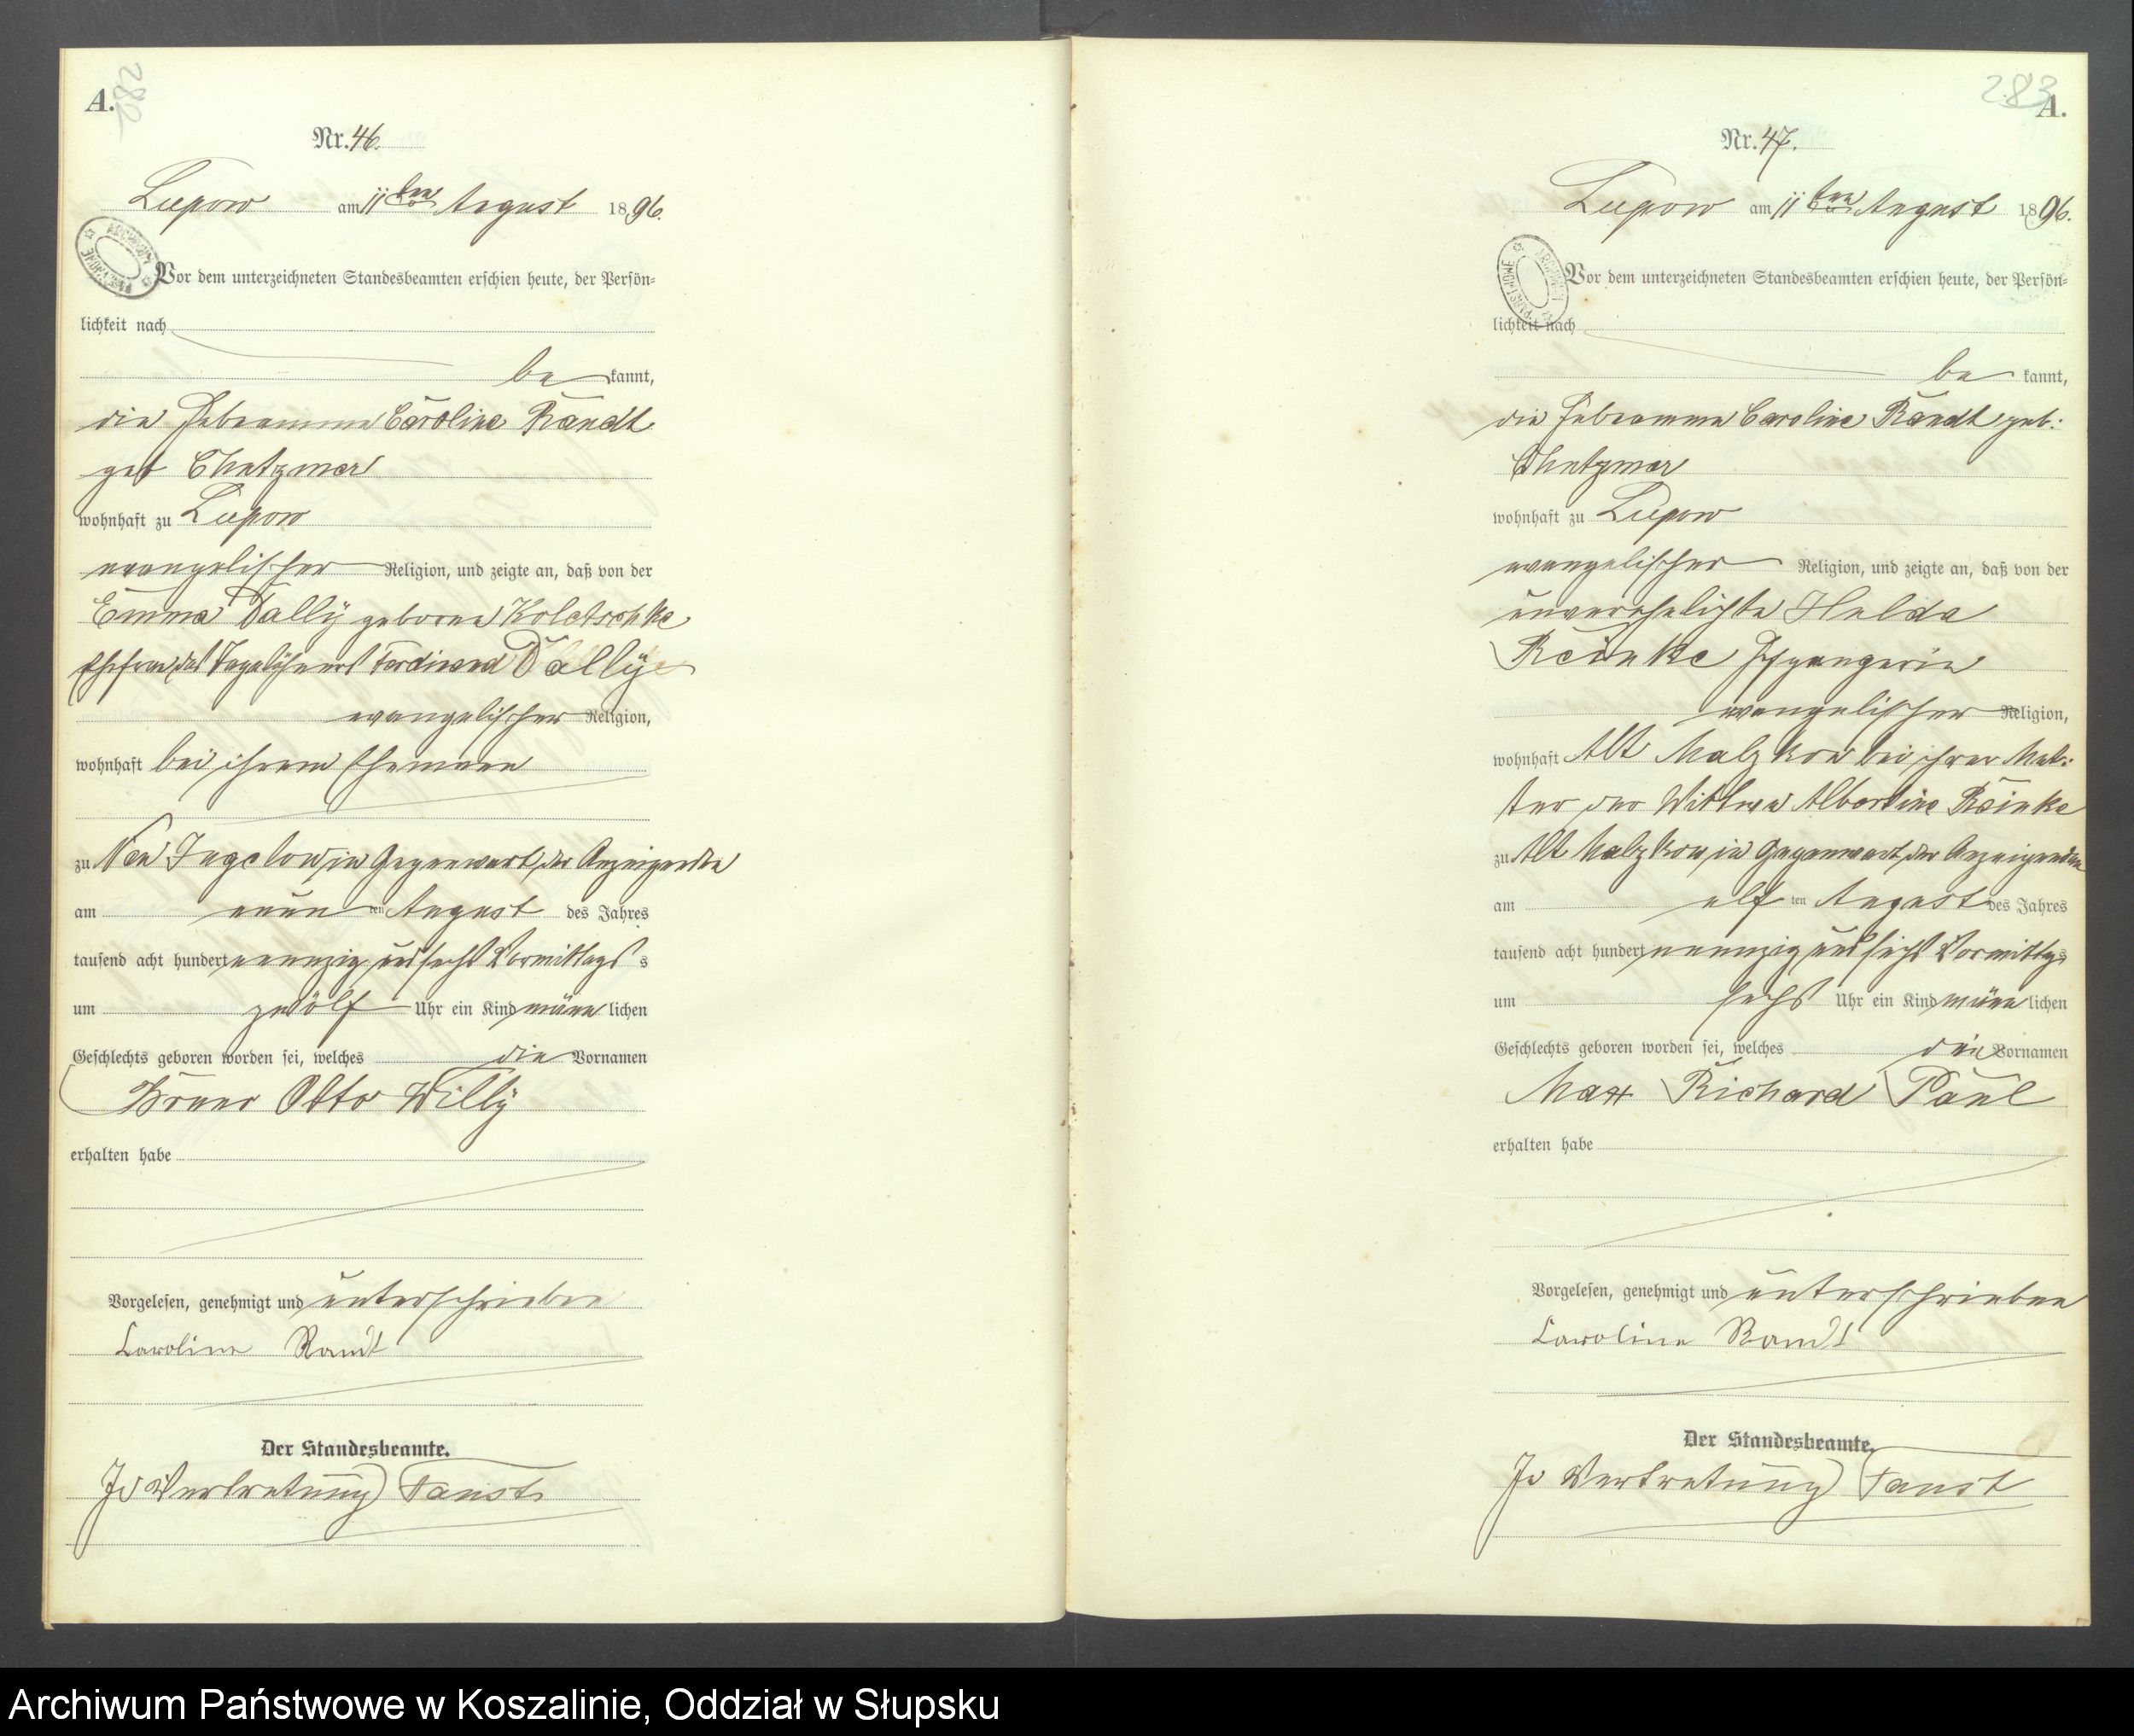 A.
282
Nr. 46.
Lupow am 11ten August 1896.
Vor dem unterzeichneten Standesbeamten erschien heute, der Persön-
lichkeit nach
be kannt,
die Hebamme Caroline Randt
geb Chatzmer
wohnhaft zu Lupow
evangelischer Religion, und zeigte an, daß von der
Emma Dally geborne Koletschke
Ehefrau des Tagelöhners Ferdinand Dally
evangelischer Religion,
wohnhaft bei ihrem Ehemann
zu Neu Jugelow in Gegenwart der Anzeigenden
am neun ten August des Jahres
tausend acht hundert neunzig und sechs Vormittags s
um zwölf Uhr ein Kind männ lichen
Geschlechts geboren worden sei, welches die Vornamen
Bruno Otto Willy
erhalten habe
Vorgelesen, genehmigt und unterschrieben
Caroline Randt
Der Standesbeamte.
In Vertretung Faust
283
A.
Nr. 47.
Lupow am 11ten August 1896.
Vor dem unterzeichneten Standesbeamten erschien heute, der Persön-
lichkeit nach
be kannt,
die Hebamme Caroline Randt geb:
Chatzmer
wohnhaft zu Lupow
evangelischer Religion, und zeigte an, daß von der
unverehelichte Hulda
Reinke
evangelischer Religion,
wohnhaft Alt Malzkow bei ihrer Mut:
ter der Wittwe Albertine Reinke
zu Alt Malzkow in Gegenwart der Anzeigenden
am elf ten August des Jahres
tausend acht hundert neunzig und sechs Vormittgs
um sechs Uhr ein Kind männ lichen
Geschlechts geboren worden sei, welches die Vornamen
Max Richard Paul
erhalten habe
Vorgelesen, genehmigt und unterschrieben
Caroline Randt
Der Standesbeamte.
In Vertretung Faust
Archiwum Państwowe w Koszalinie, Oddział w Słupsku